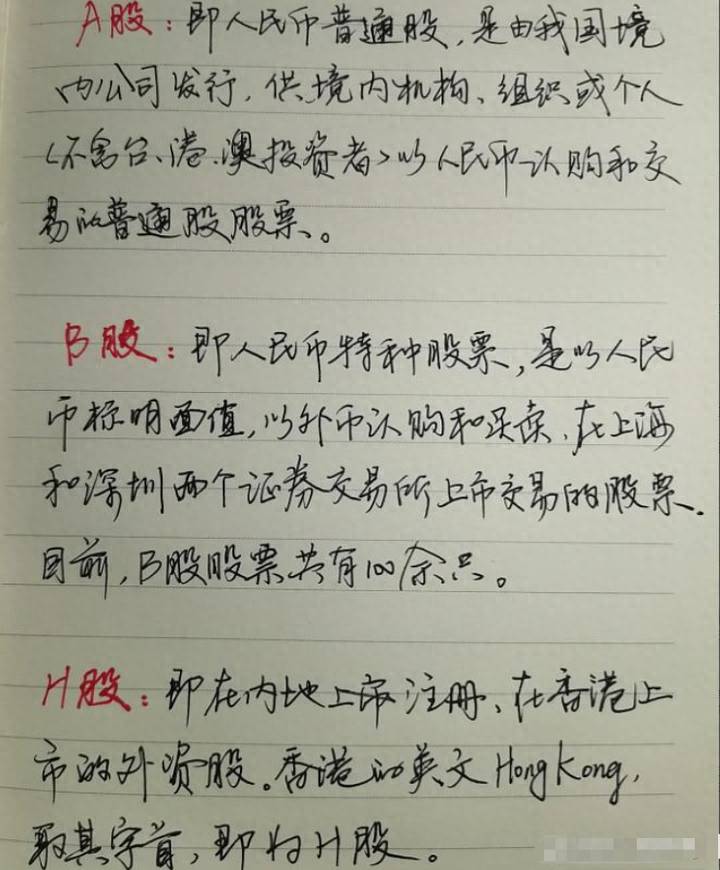 A股：即人民币普通股，是由我国境
内公司发行，供境内机构、组织或个人
（不含台、港、澳投资者）以人民币认购和交
易的普通股股票。
B股：即人民币特种股票，是以人民
币标明面值，以外币认购和买卖、在上海
和深圳两个证券交易所上市交易的股票.
目前，B股股票共有100余只。
H股：即在内地上市注册、在香港上
市的外资股。香港的英文HongKong，
取其字首，即为H股。